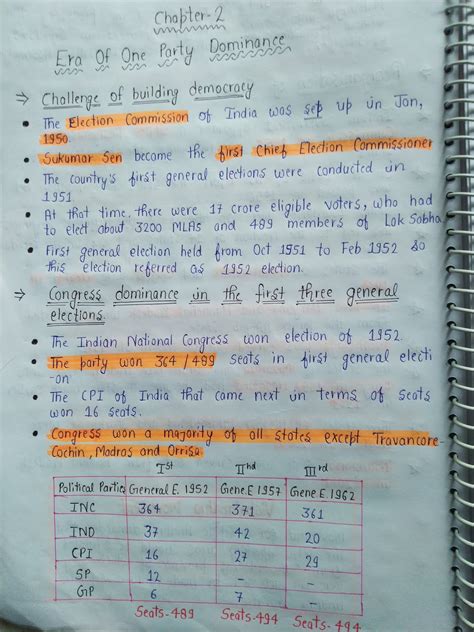 Chapter-2
Era Of One Party Dominance
⇒ Challenge of building democracy
• The Election Commission of India was sep up in Jan,
1950.
• Sukumar Sen became the first Chief Election Commissioner
• The country's first general elections were conducted in
1951
• At that time, there were 17 crore eligible voters, who had
to elect about 3200 MLAs and 489 members of Lok Sabha
• First general election held from Oct 1951 to Feb 1952 so
this election referred as 1952 election.
⇒ Congress dominance in the first three general
elections.
• The Indian National Congress won election of 1952.
• The party won 364/489 seats in first general electi
-on
• The CPI of India that came next in terms of seats
won 16 seats.
• Congress won a majority of all states except Travancore-
Cochin, Madras and Orrisa.
Ist IInd IIIrd
Political Partie General E. 1952 Gene.E 1957 Gene E 1962
INC 364 371 361
IND 37 42 20
CPI 16 27 29
SP 12 - -
GP 6 7 -
Seats-489 Seats-494 Seats-494